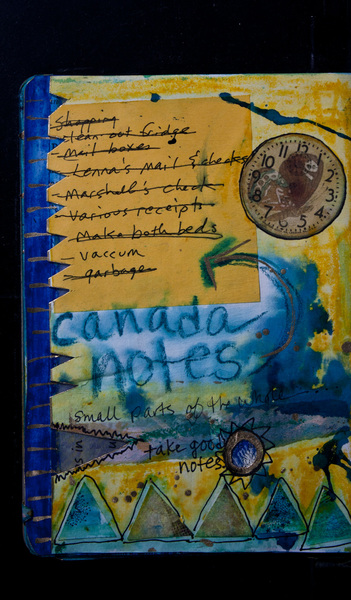 Shopping
- clean out fridge
- mail boxes
- Lenna's mail & checks
- Marshall's check
- Various receipts
- Make both beds
- Vaccum
- garbage
11 12 1
10 2
9 3
8 4
7 6 5
canada
notes
small parts of the whole
take good
notes